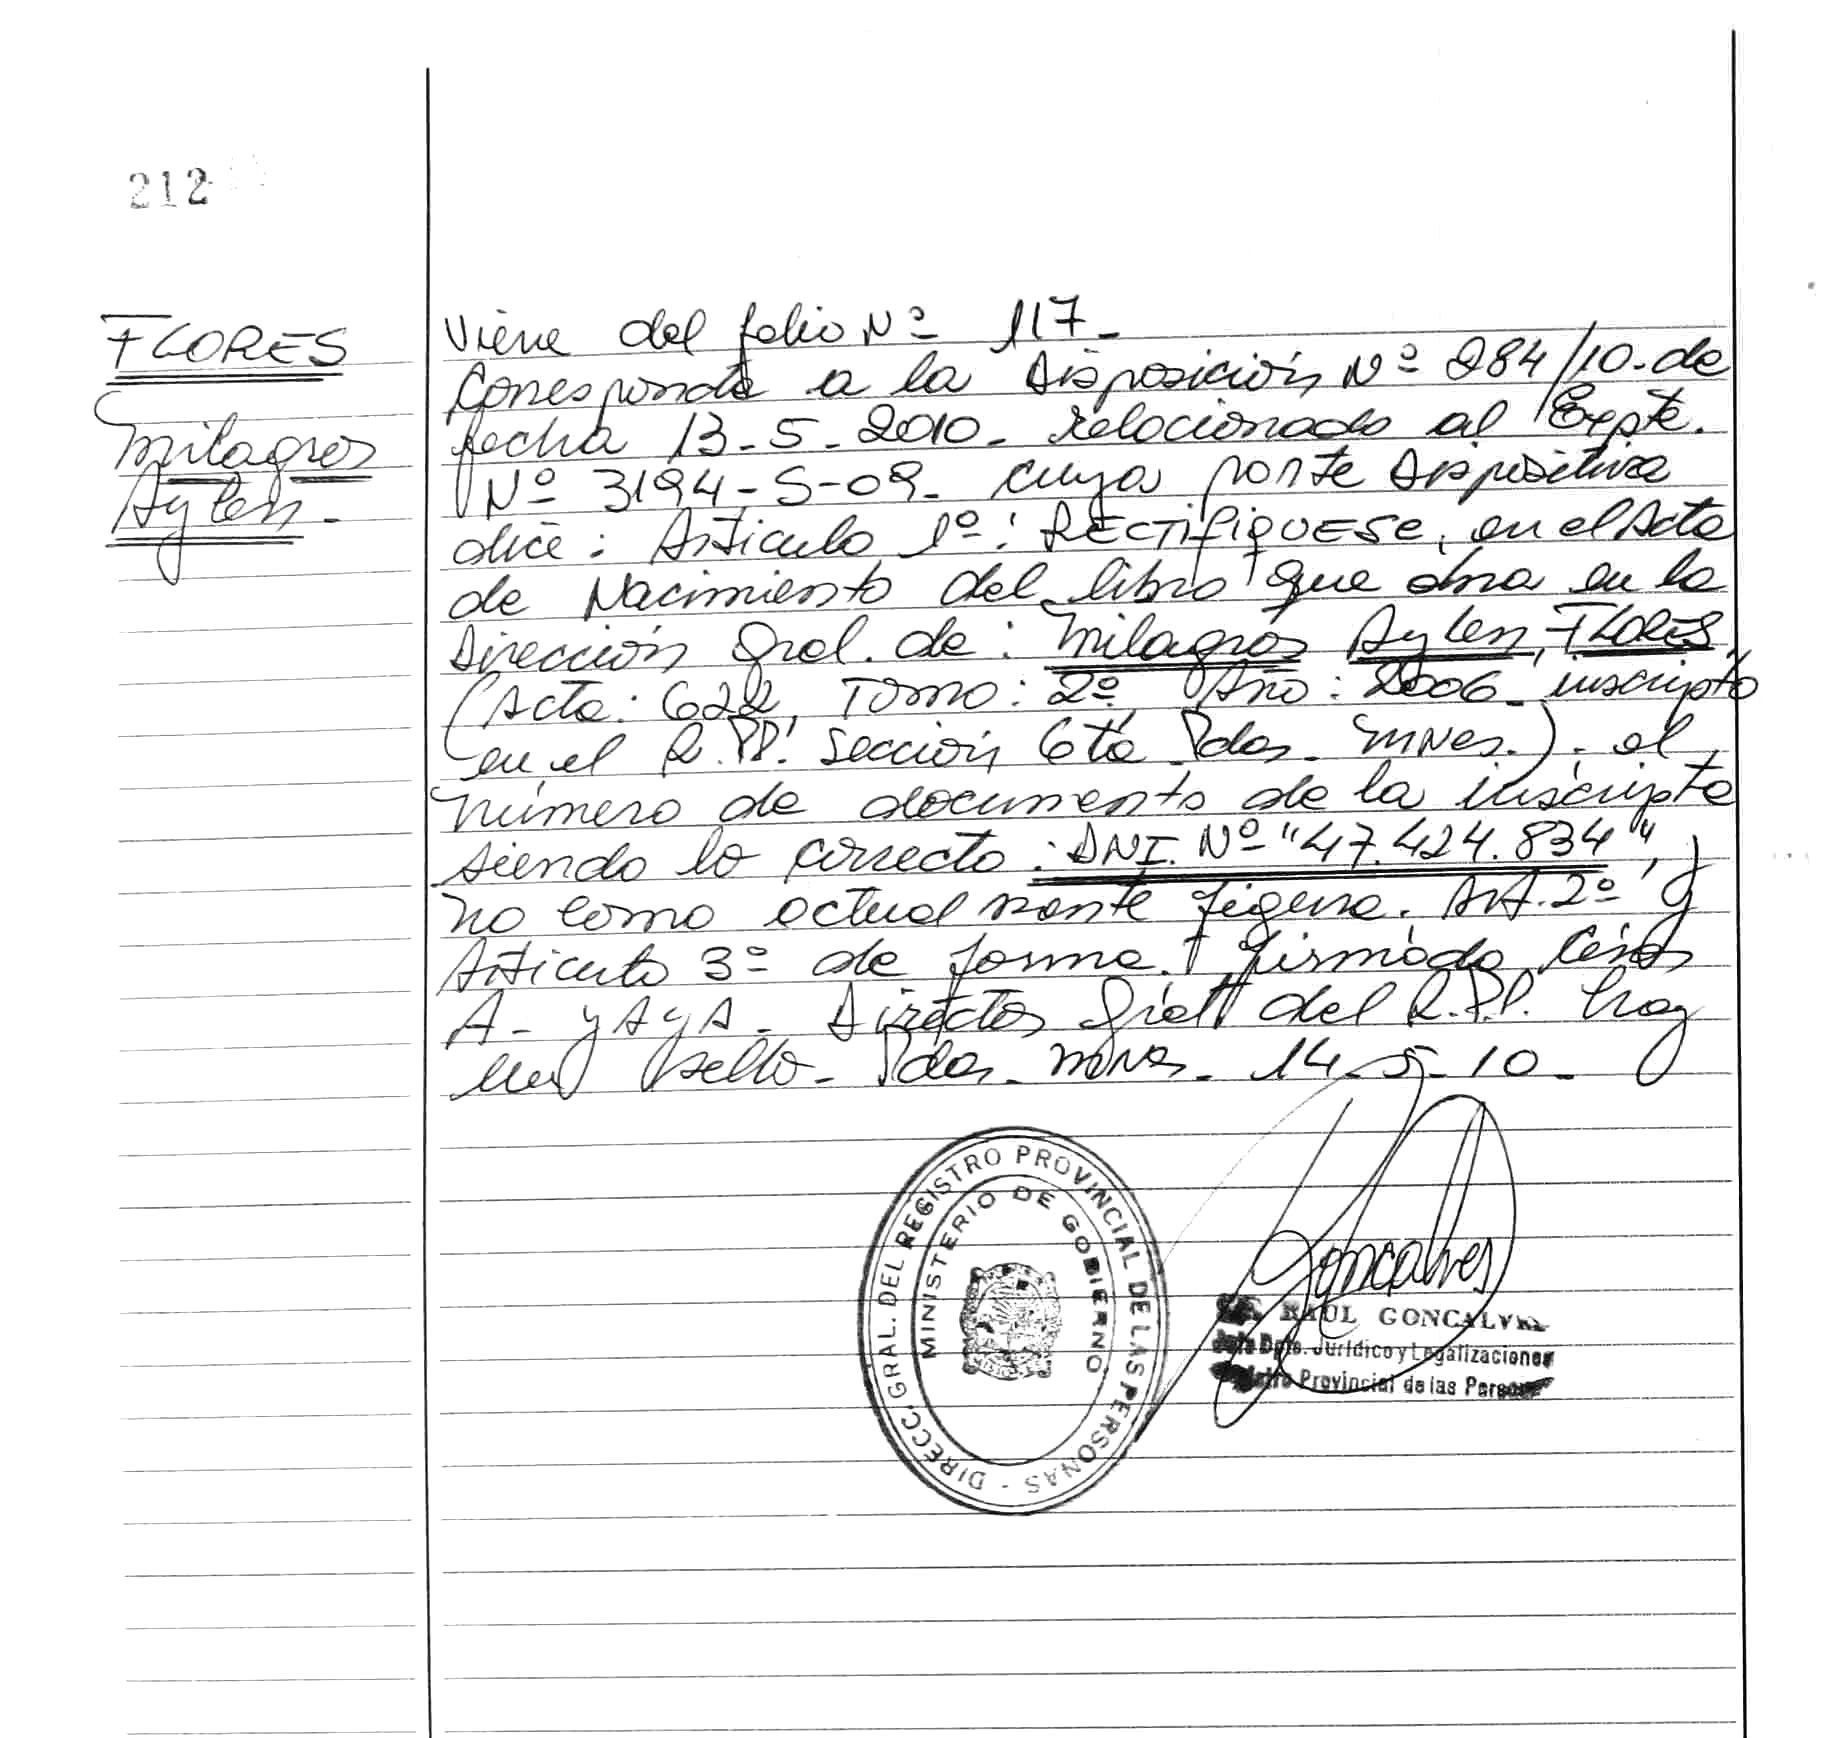 212
FLORES
Milagros
Aylen.
Viene del folio Nº 117-
Corresponde a la Disposición Nº 284/10. de
fecha 13-5-2010- relacionado al Expte.
Nº 3194-S-09- cuya parte dispositiva
dice: Artículo 1º: RECTIFIQUESE, en el Acta
de Nacimiento del libro que obra en la
Dirección Gral. de: Milagros Aylen, FLORES.
(Acta: 622, Tomo: 2º, Año: 2006- inscripta
en el R.P.P. Sección 6ta Pdas. Mnes.). el
número de documento de la inscripta
siendo lo correcto: DNI. Nº "47.424.834", y
no como actualmente figura. Art. 2º y
Artículo 3º de forma. Firmado
A- YAYA- Director Gral del R.P.P. hay
un sello- Pdas- Mnes- 14-5-10-
DIRECC. GRAL. DEL REGISTRO PROVINCIAL DE LAS PERSONAS -
MINISTERIO DE GOBIERNO
Goncalves
RAUL GONCALVES
Jefe Dpto. Jurídico y Legalizaciones
Provincial de las Personas